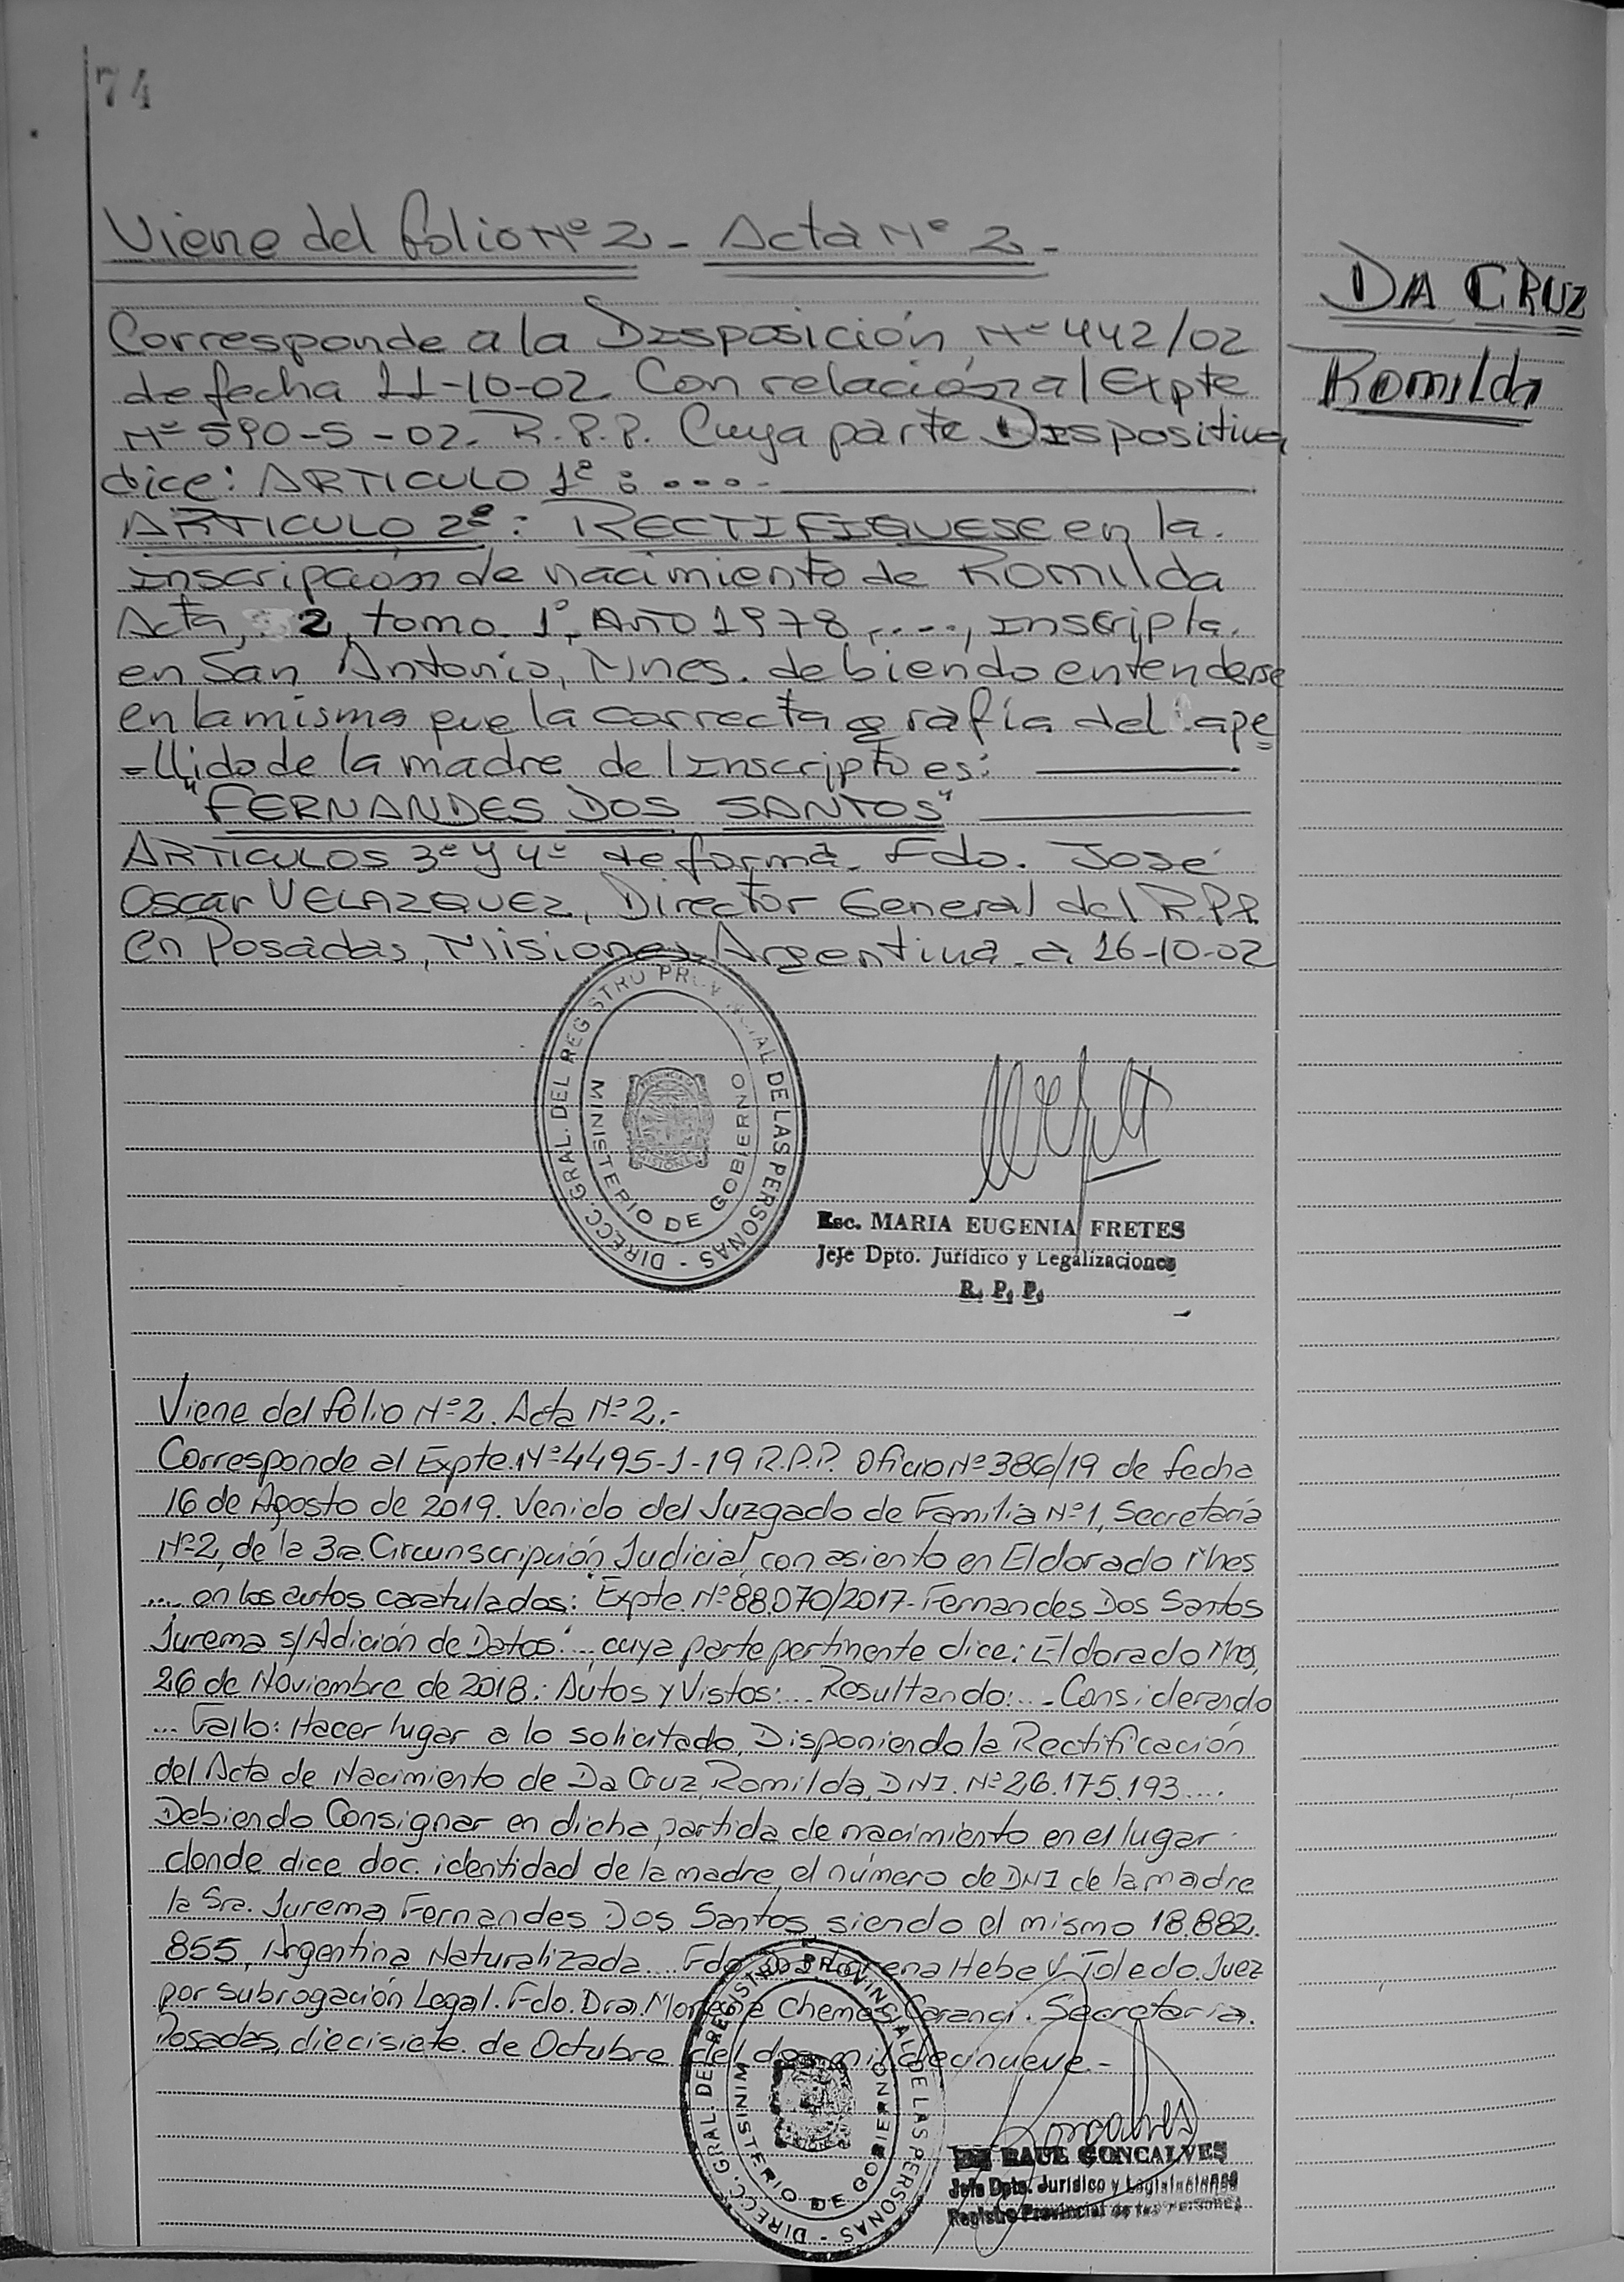 74
Viene del folio Nº 2 - Acta Nº 2 -
DA CRUZ
Romilda
Corresponde a la Disposición Nº 442/02
de fecha 11-10-02 Con relación al Expte
Nº 590-S-02. R.P.P. Cuya parte Dispositiva
dice: ARTICULO 1º: ....
ARTICULO 2º: RECTIFIQUESE en la
Inscripción de nacimiento de Romilda
Acta, 2, tomo 1º, AÑO 1978, ...., Inscripta
en San Antonio, Mnes. debiendo entenderse
en la misma que la correcta grafía del ape
-llido de la madre del Inscripto es:
"FERNANDES DOS SANTOS"
ARTICULOS 3º y 4º de forma. Fdo. José
Oscar VELAZQUEZ, Director General del R.P.P.
en Posadas, Misiones, Argentina a 16-10-02
DIRECC. GRAL. DEL REGISTRO PROVINCIAL DE LAS PERSONAS -
MINISTERIO DE GOBIERNO
PROVINCIA DE
MISIONES
Esc. MARIA EUGENIA FRETES
Jefe Dpto. Jurídico y Legalizaciones
R. P. P.
Viene del folio Nº 2. Acta Nº 2.-
Corresponde al Expte. Nº 4495-J-19 R.P.P. Oficio Nº 386/19 de fecha
16 de Agosto de 2019. Venido del Juzgado de Familia Nº 1, Secretaría
Nº 2, de la 3ra. Circunscripción Judicial, con asiento en Eldorado Mnes
.... en los autos caratulados: "Expte. Nº 88.070/2017- Fernandes Dos Santos
Jurema s/Adición de Datos"..., cuya parte pertinente dice: Eldorado Mnes,
26 de Noviembre de 2018: Autos y Vistos:... Resultando:... Considerando
... Fallo: Hacer lugar a lo solicitado, Disponiendo la Rectificación
del Acta de Nacimiento de Da Cruz, Romilda, DNI. Nº 26.175.193....
Debiendo Consignar en dicha partida de nacimiento en el lugar
donde dice doc. identidad de la madre, el número de DNI de la madre
la Sra. Jurema Fernandes Dos Santos, siendo el mismo 18.882.
855, Argentina Naturalizada... Fdo Dra. Lorena Hebe V. Toledo. Juez
por Subrogación Legal. Fdo. Dra. Chemes. Secretaria.
Posadas, diecisiete de Octubre del dos mil diecinueve.-
DIRECC. GRAL. DEL REGISTRO PROVINCIAL DE LAS PERSONAS -
MINISTERIO DE GOBIERNO
Goncalves
RAUL GONCALVES
Jefe Dpto. Jurídico y Legislaciones
Registro Provincial de las Personas